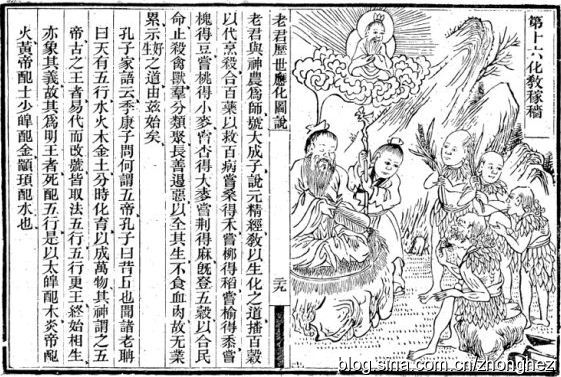 第十六化教稼穡
老君歷世應化圖說
二九
老君與神農爲師號大成子說元精經教以生化之道播百穀
以代烹殺合百藥以救百病嘗桑得禾嘗柳得稻嘗榆得黍嘗
槐得豆嘗桃得小麥嘗杏得大麥嘗荆得麻旣登五穀以合民
命止殺禽獸羣分類聚長善遏惡以全其生不食血肉故无業
累示好生之道由茲始矣
孔子家語云季康子問何謂五帝孔子曰昔丘也聞諸老聃
曰天有五行水火木金土分時化育以成萬物其神謂之五
帝古之王者易代而改號皆取法五行五行更王終始相生
亦象其義故其爲明王者死配五行是以太皡配木炎帝配
火黃帝配土少皡配金顓頊配水也
blog.sina.com.cn/zhonghez